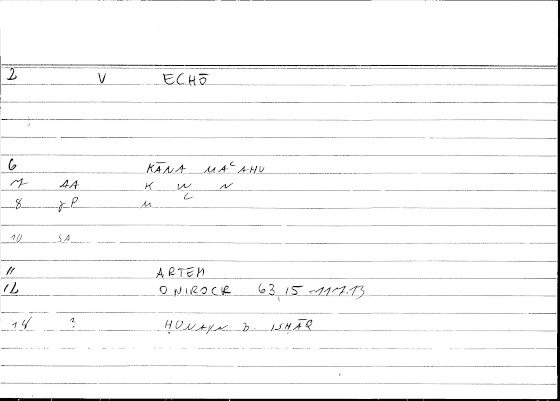 2 V ECHŌ
6 KĀNA MAʿAHU
7 AA K W N
8 γP M ʿ
10 SA
11 ARTEM
12 ONIROCR 63,15 - 117.13
14 ? ḤUNAYN B. ISḤĀQ